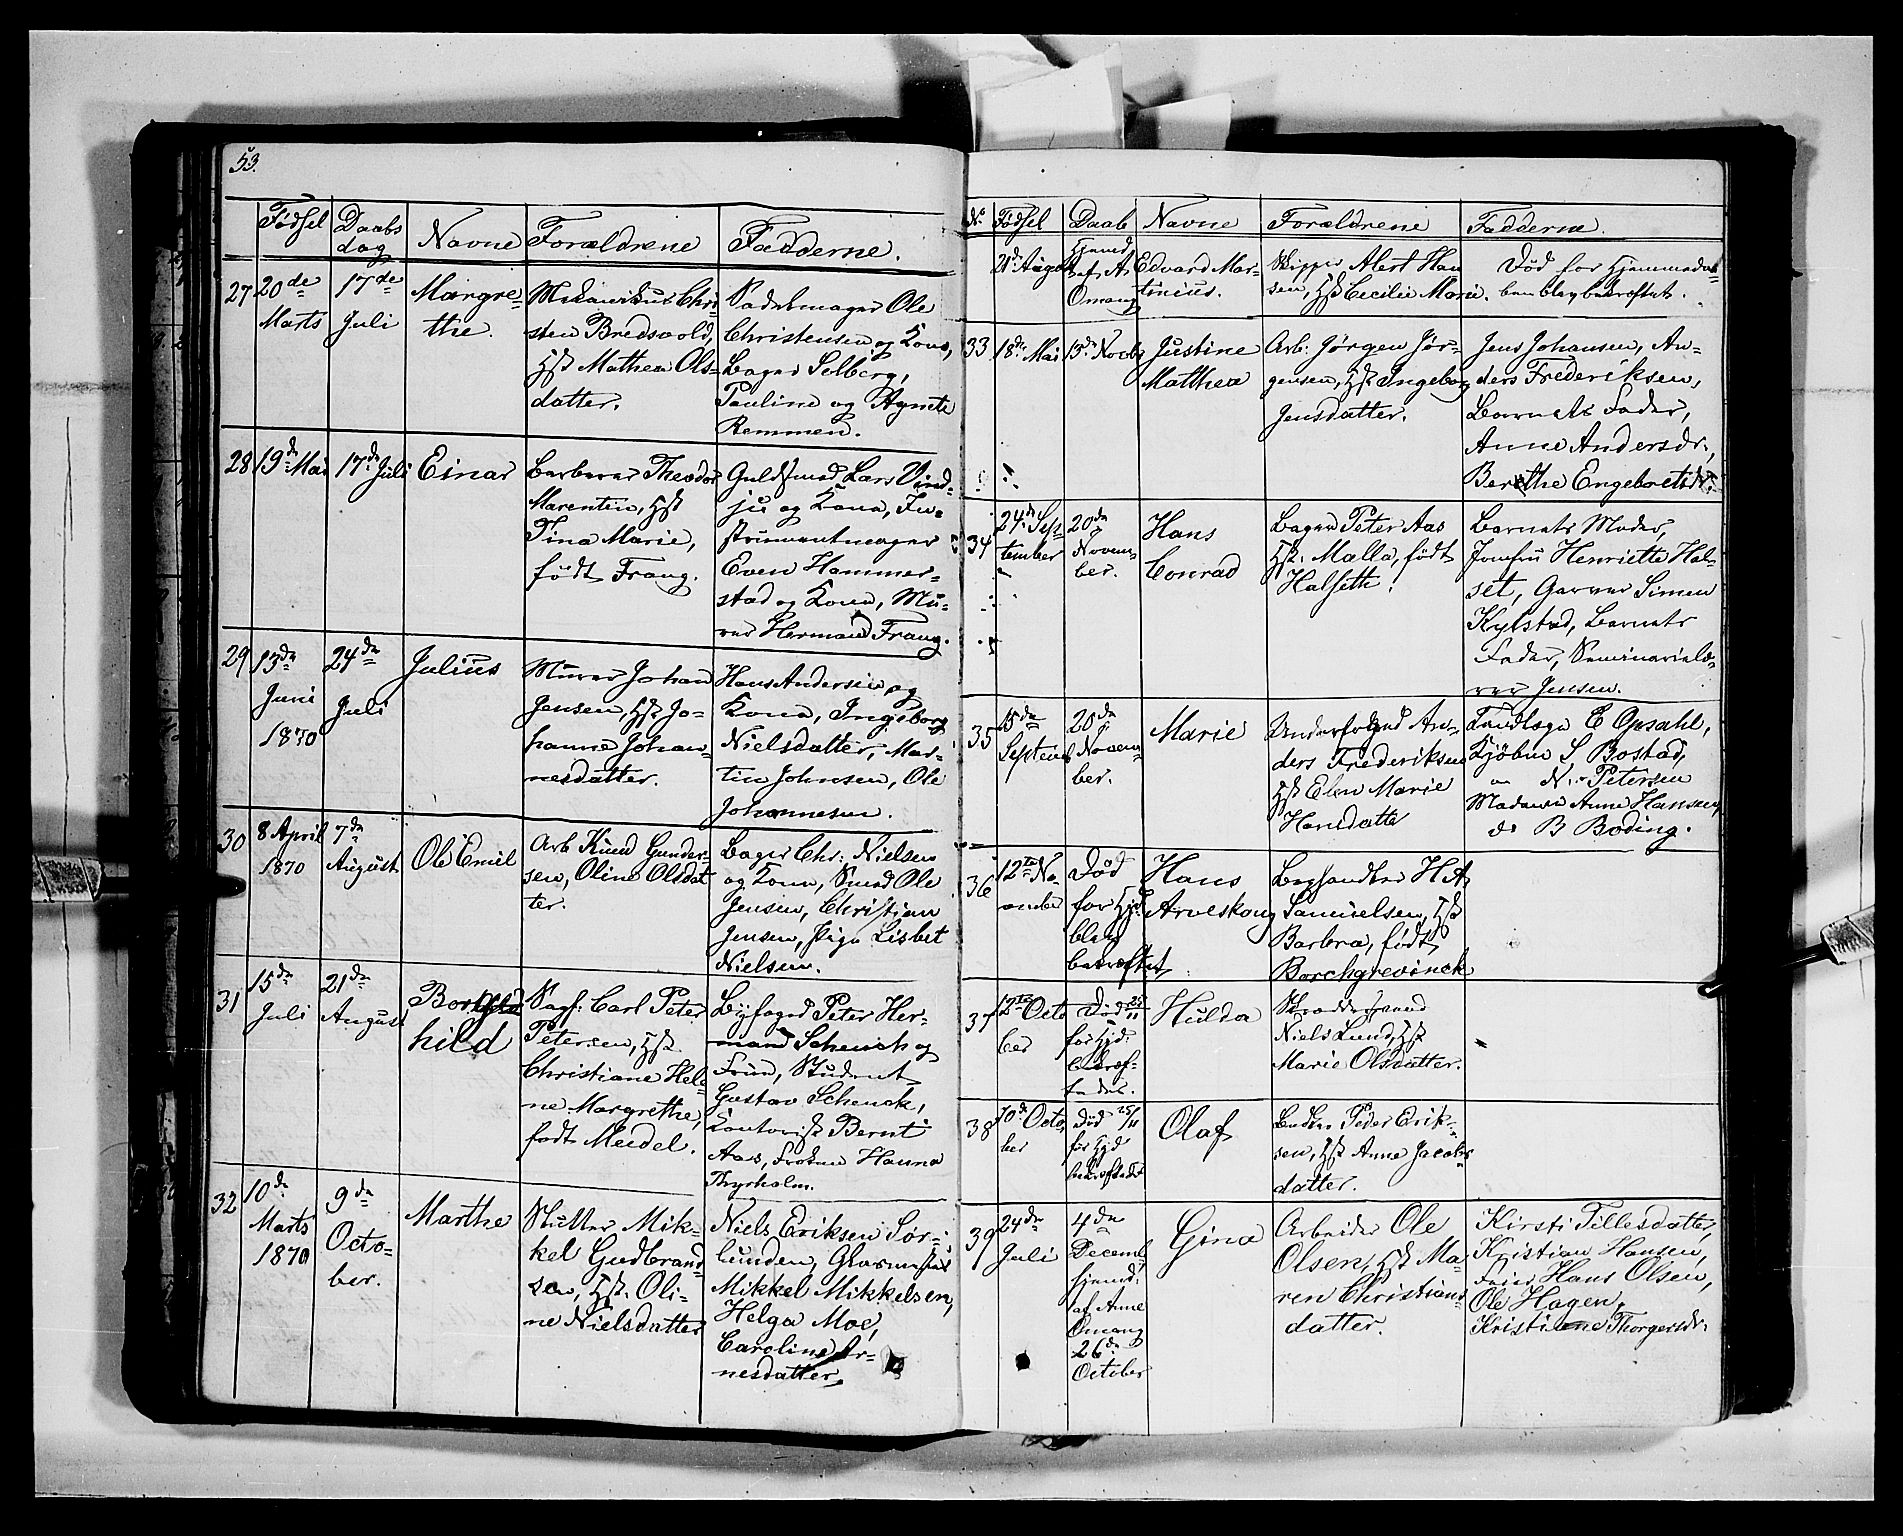 53.
Fødsel Daabs dag Navne Forældrene Fadderne.
27 20de Marts
17de Juli
Margre-
the.
Mekanikus Chri-
sten Bredsvold,
Hst. Mathea Ols-
datter.
Sadelmager Ole
Christensen og Kone,
Bager Selberg,
Pauline og Agnete
Remmen.
28 19de Mai
17de Juli
Einar
Barberer Theodor
Marentin, Hst
Tina Marie,
født Frang.
Guldsmed Lars
og Kone, In-
strumentmager
Even Hammer-
stad og Kone, Mu-
rer Herman Frang.
29 13de
Juni
1870
24de
Juli
Julius
Murer Johan
Jensen, Hst. Jo-
hanne Johan-
nesdatter.
Hans Andersen og
Kone, Ingeborg
Nielsdatter, Mar-
tin Johnsen, Ole
Johannesen.
30 8 April
1870
7de
August
Ole Emil
Arb Knud Gunder-
sen, Oline Olsdat
ter.
Bager Chr: Nielsen
og Kone, Smed Ole
Jensen, Christian
Jensen, Pige Lisbet
Nielsen.
31 15de
Juli
21de
August
Borghild
hild
Sagf: Carl Peter
Petersen, Hst.
Christiane Hele
ne Margrethe,
født Meidel.
Byfoged Peter Her-
mand Schenck og
Frue, Student
Gustav Schenck,
Kontorist Bernt
Aas, Frøken Hanna
Thyrholm.
32 10de
Marts
1870
9de
Octo-
ber.
Marthe
Slutter Mik-
kel Gudbrand
sen, Hst. Oli-
ne Nielsdatter
Niels Eriksen Sør-
lunden, Glarmester
Mikkel Mikkelsen,
Helga Moe,
Caroline Ar-
nesdatter,
No Fødsel Daab Navne Forældrene Fadderne.
21de August
Hjemd.
af A.
Omang
Edvard Mar-
tinius.
Skipper Alert Han
sen, Hst Cecilie Marie.
Død før Hjemmedaa-
ben blev bekræftet.
33 18de Mai
13de Novbr
Justine
Matthea
Arb: Jørgen Jør-
gensen, Hst Ingeborg
Jensdatter.
Jens Johansen, An-
ders Frederiksen,
Barnets Fader,
Anne Andersdr.,
Berthe Engebretsdr.
34 24de Sep
tember
20de
Novem-
ber.
Hans
Conrad
Bager Peter Aas
Hst. Malla, født
Halseth.
Barnets Moder,
Jomfru Henriette Hal-
set, Garver Simen
Kylstad, Barnets
Fader, Seminarielæ-
rer Jensen.
35 15de
Septemb
20de
Novem-
ber.
Marie
Underfoged An-
ders Frederiksen
Hst Elen Marie
Hansdatter
Landhgn E Opsahl,
Kjøbm S Bostad,
N. Petersen
Madame Anne Hansen,
do B Boding.
36 12te No
vember
Død
før Hjd:
blev
bekræftet
Hans
Arveskoug
Boghandler H A
Samuelsen, Hst
Barbra, født
Borchgrevinck
37 12te Octo
ber
Død 25/11
før Hjd:
bekræf-
tedes.
Hulda
Skræddersvend
Niels Lund, Hst
Marie Olsdatter.
38 10de Octo
ber
Død 25/11
før Hjd
bekræftedes
Olaf
Peder Erik-
sen, Hst Anne Jacobs
datter.
39 24de
Juli
4de
Decemb
hjemd:
af Anne
Omang
26de
October
Gina
Arbeider Ole
Olsen, Hst Ma-
ren Christians
datter.
Kirsti Tillesdatter,
Kristian Hansen,
Hans Olsen,
Ole Hagen,
Kristiane Thorgersdr.